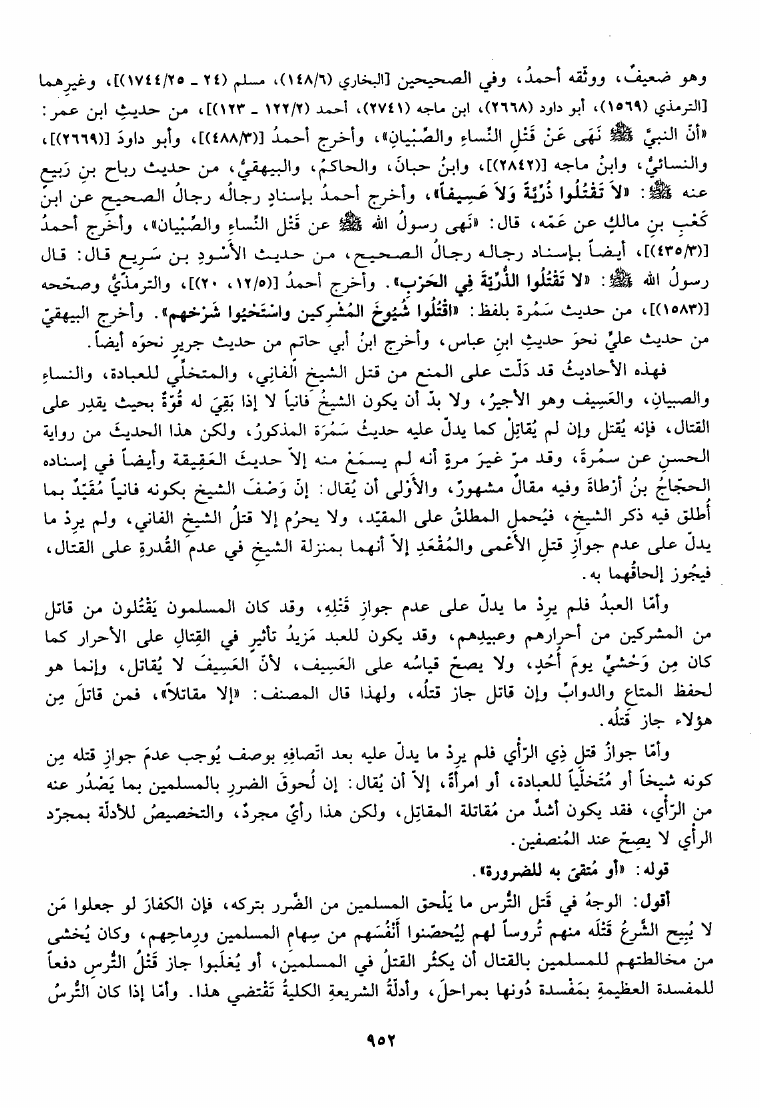 وهو ضعيفٌ، ووثّقه أحمدُ، وفي الصحيحين [البخاري (١٤٨/٦)، مسلم (٢٤ ـ ١٧٤٤/٢٥)]، وغيرِهما
[الترمذي (١٥٦٩)، أبو داود (٢٦٦٨)، ابن ماجه (٢٧٤١)، أحمد (١٢٢/٢ ـ ١٢٣)]، من حديثِ ابن عمر:
«أنّ النبيَّ ﷺ نَهَى عَنْ قَتْلِ النِّساءِ والصِّبْيانِ»، وأخرج أحمدُ [(٤٨٨/٣)]، وأبو داودَ [(٢٦٦٩)]،
والنسائيُّ، وابنُ ماجه [(٢٨٤٢)]، وابنُ حبانَ، والحاكمُ، والبيهقيُّ، من حديث رباح بنِ رَبيع
عنه ﷺ: «لاَ تَقْتُلُوا ذُرِّيَّةً وَلاَ عَسِيفاً»، وأخرج أحمدُ بإسنادٍ رجالُه رجالُ الصحيح عن ابنِ
كَعْبِ بنِ مالكٍ عن عَمّه، قال: «نَهى رسولُ الله ﷺ عن قَتْل النِّساءِ والصِّبْيان»، وأخرَج أحمدُ
[(٤٣٥/٣)]، أيضاً بإسناد رجاله رجالُ الصحيح، من حديث الأسْودِ بن سَريعٍ قال: قال
رسولُ الله ﷺ: «لا تَقْتُلُوا الذُّرِّيَّةَ فِي الحَرْبِ». وأخرج أحمدُ [(١٢/٥، ٢٠)]، والترمذيُّ وصحّحه
[(١٥٨٣)]، من حديث سَمُرة بلفظ: «اقْتُلُوا شُيُوخَ المُشْركين واسْتَحْيُوا شَرْخَهم». وأخرج البيهقيّ
من حديث عليٍّ نحوَ حديثِ ابنِ عباس، وأخرج ابنُ أبي حاتم من حديث جريرٍ نحوَه أيضاً.
فهذه الأحاديثُ قد دَلّت على المنع من قتل الشيخِ الفاني، والمتخلِّي للعبادة، والنساءِ
والصبيانِ، والعَسِيف وهو الأجيرُ، ولا بدّ أن يكون الشيخُ فانياً لا إذا بَقِيَ له قُوّةٌ بحيث يقدِر على
القتال، فإنه يُقتل وإن لم يُقاتِلْ كما يدلّ عليه حديثُ سَمُرَة المذكورُ، ولكن هذا الحديثَ من رواية
الحسنِ عن سمُرةَ، وقد مرّ غيرَ مرةٍ أنه لم يسمَعْ منه إلاّ حديثَ العَقِيقة وأيضاً في إسناده
الحجّاجُ بنُ أرْطاةَ وفيه مقالٌ مشهورٌ، والأوْلى أن يُقال: إنّ وَصْفَ الشيخ بكونه فانياً مُقَيّدٌ بما
أُطلق فيه ذكر الشيخِ، فيُحمل المطلقُ على المقيّد، ولا يحرُم إلا قتلُ الشيخِ الفاني، ولم يرِدْ ما
يدلّ على عدم جوازِ قتلِ الأعْمى والمُقْعَدِ إلاّ أنهما بمنزلة الشيخِ في عدم القُدرةِ على القتال،
فيجُوز إلحاقُهما به.
وأمّا العبدُ فلم يرِدْ ما يدلّ على عدم جوازِ قَتْلِهِ، وقد كان المسلمون يَقْتُلون من قاتل
من المشركين من أحرارِهم وعبيدِهم، وقد يكون للعبد مَزيدُ تأثيرٍ في القِتالِ على الأحرار كما
كان مِن وَحْشيٍّ يومَ أُحُدٍ، ولا يصحّ قياسُه على العَسِيف، لأنّ العَسِيفَ لا يُقاتل، وإنما هو
لحفظ المتاع والدوابِّ وإن قاتل جاز قتلُه، ولهذا قال المصنف: «إلا مقاتلاً»، فمن قاتلَ مِن
هؤلاء جاز قَتلُه.
وأمّا جوازُ قتلِ ذِي الرّأي فلم يرِدْ ما يدلّ عليه بعد اتّصافِهِ بوصف يُوجب عدمَ جوازِ قتله مِن
كونه شيخاً أو مُتَخلِّياً للعبادة، أو امرأةً، إلاّ أن يُقالَ: إن لُحوقَ الضررِ بالمسلمين بما يَصْدُر عنه
من الرّأي، فقد يكون أشدَّ من مُقاتلة المقاتِل، ولكن هذا رأيٌ مجردٌ، والتخصيصُ للأدلّة بمجرّد
الرأي لا يصِحّ عند المُنصفين.
قوله: «أو مُتقىً به للضرورة».
أقول: الوجهُ في قَتل التُّرس ما يَلْحق المسلمين من الضّرر بتركه، فإن الكفارَ لو جعلوا مَن
لا يُبيح الشَّرعُ قَتْلَه منهم تُروساً لهم لِيُحصّنوا أَنْفُسَهم من سِهام المسلمين ورِماحِهم، وكان يُخشى
من مخالطتهم للمسلمين بالقتال أن يكثُر القتلُ في المسلمين، أو يُغلَبوا جاز قَتْلُ التُّرسِ دفعاً
للمفسدة العظيمةِ بمَفْسدة دُونها بمراحلَ، وأدلّةُ الشريعةِ الكليةُ تَقْتضي هذا. وأمّا إذا كان التُّرسُ
٩٥٢